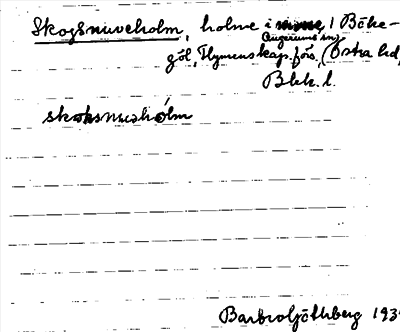 Skogsnuveholm, holme i 1 Böke-
Augerums sn,
göl, Flymens kap. förs. (Östra hd,
Blek. l.
skoksnusholm
Barbro Göthberg 193